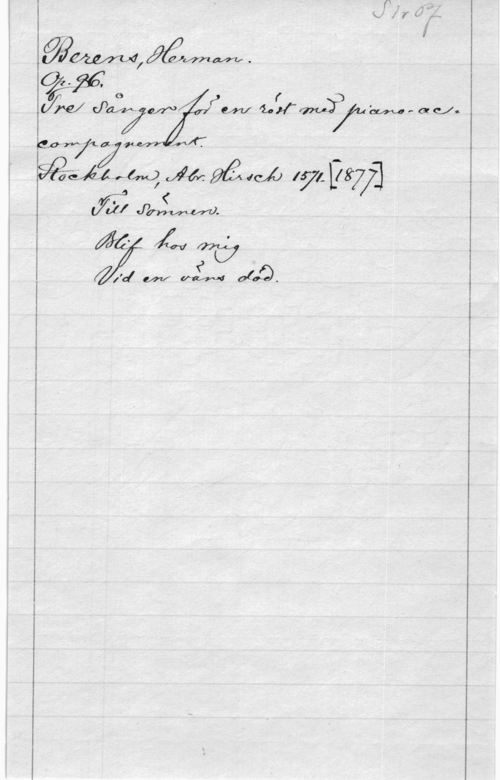 Berens, Herman.
Op. 96.
Tre Sånger för en röst med piano-ac-
compagnement.
Stockholm, Abr. Hirsch 1571. [1877]
Till Sömnen.
Blif hos mig
Vid en väns död.